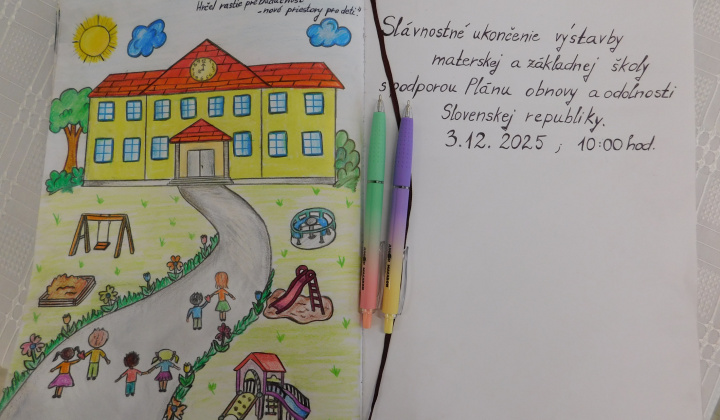 Hrčeľ rastie pre budúcnosť
-nové priestory pre deti."
Slávnostné ukončenie výstavby
materskej a základnej školy
s podporou Plánu obnovy a odolnosti
Slovenskej republiky.
3.12. 2025 ; 10:00 hod.